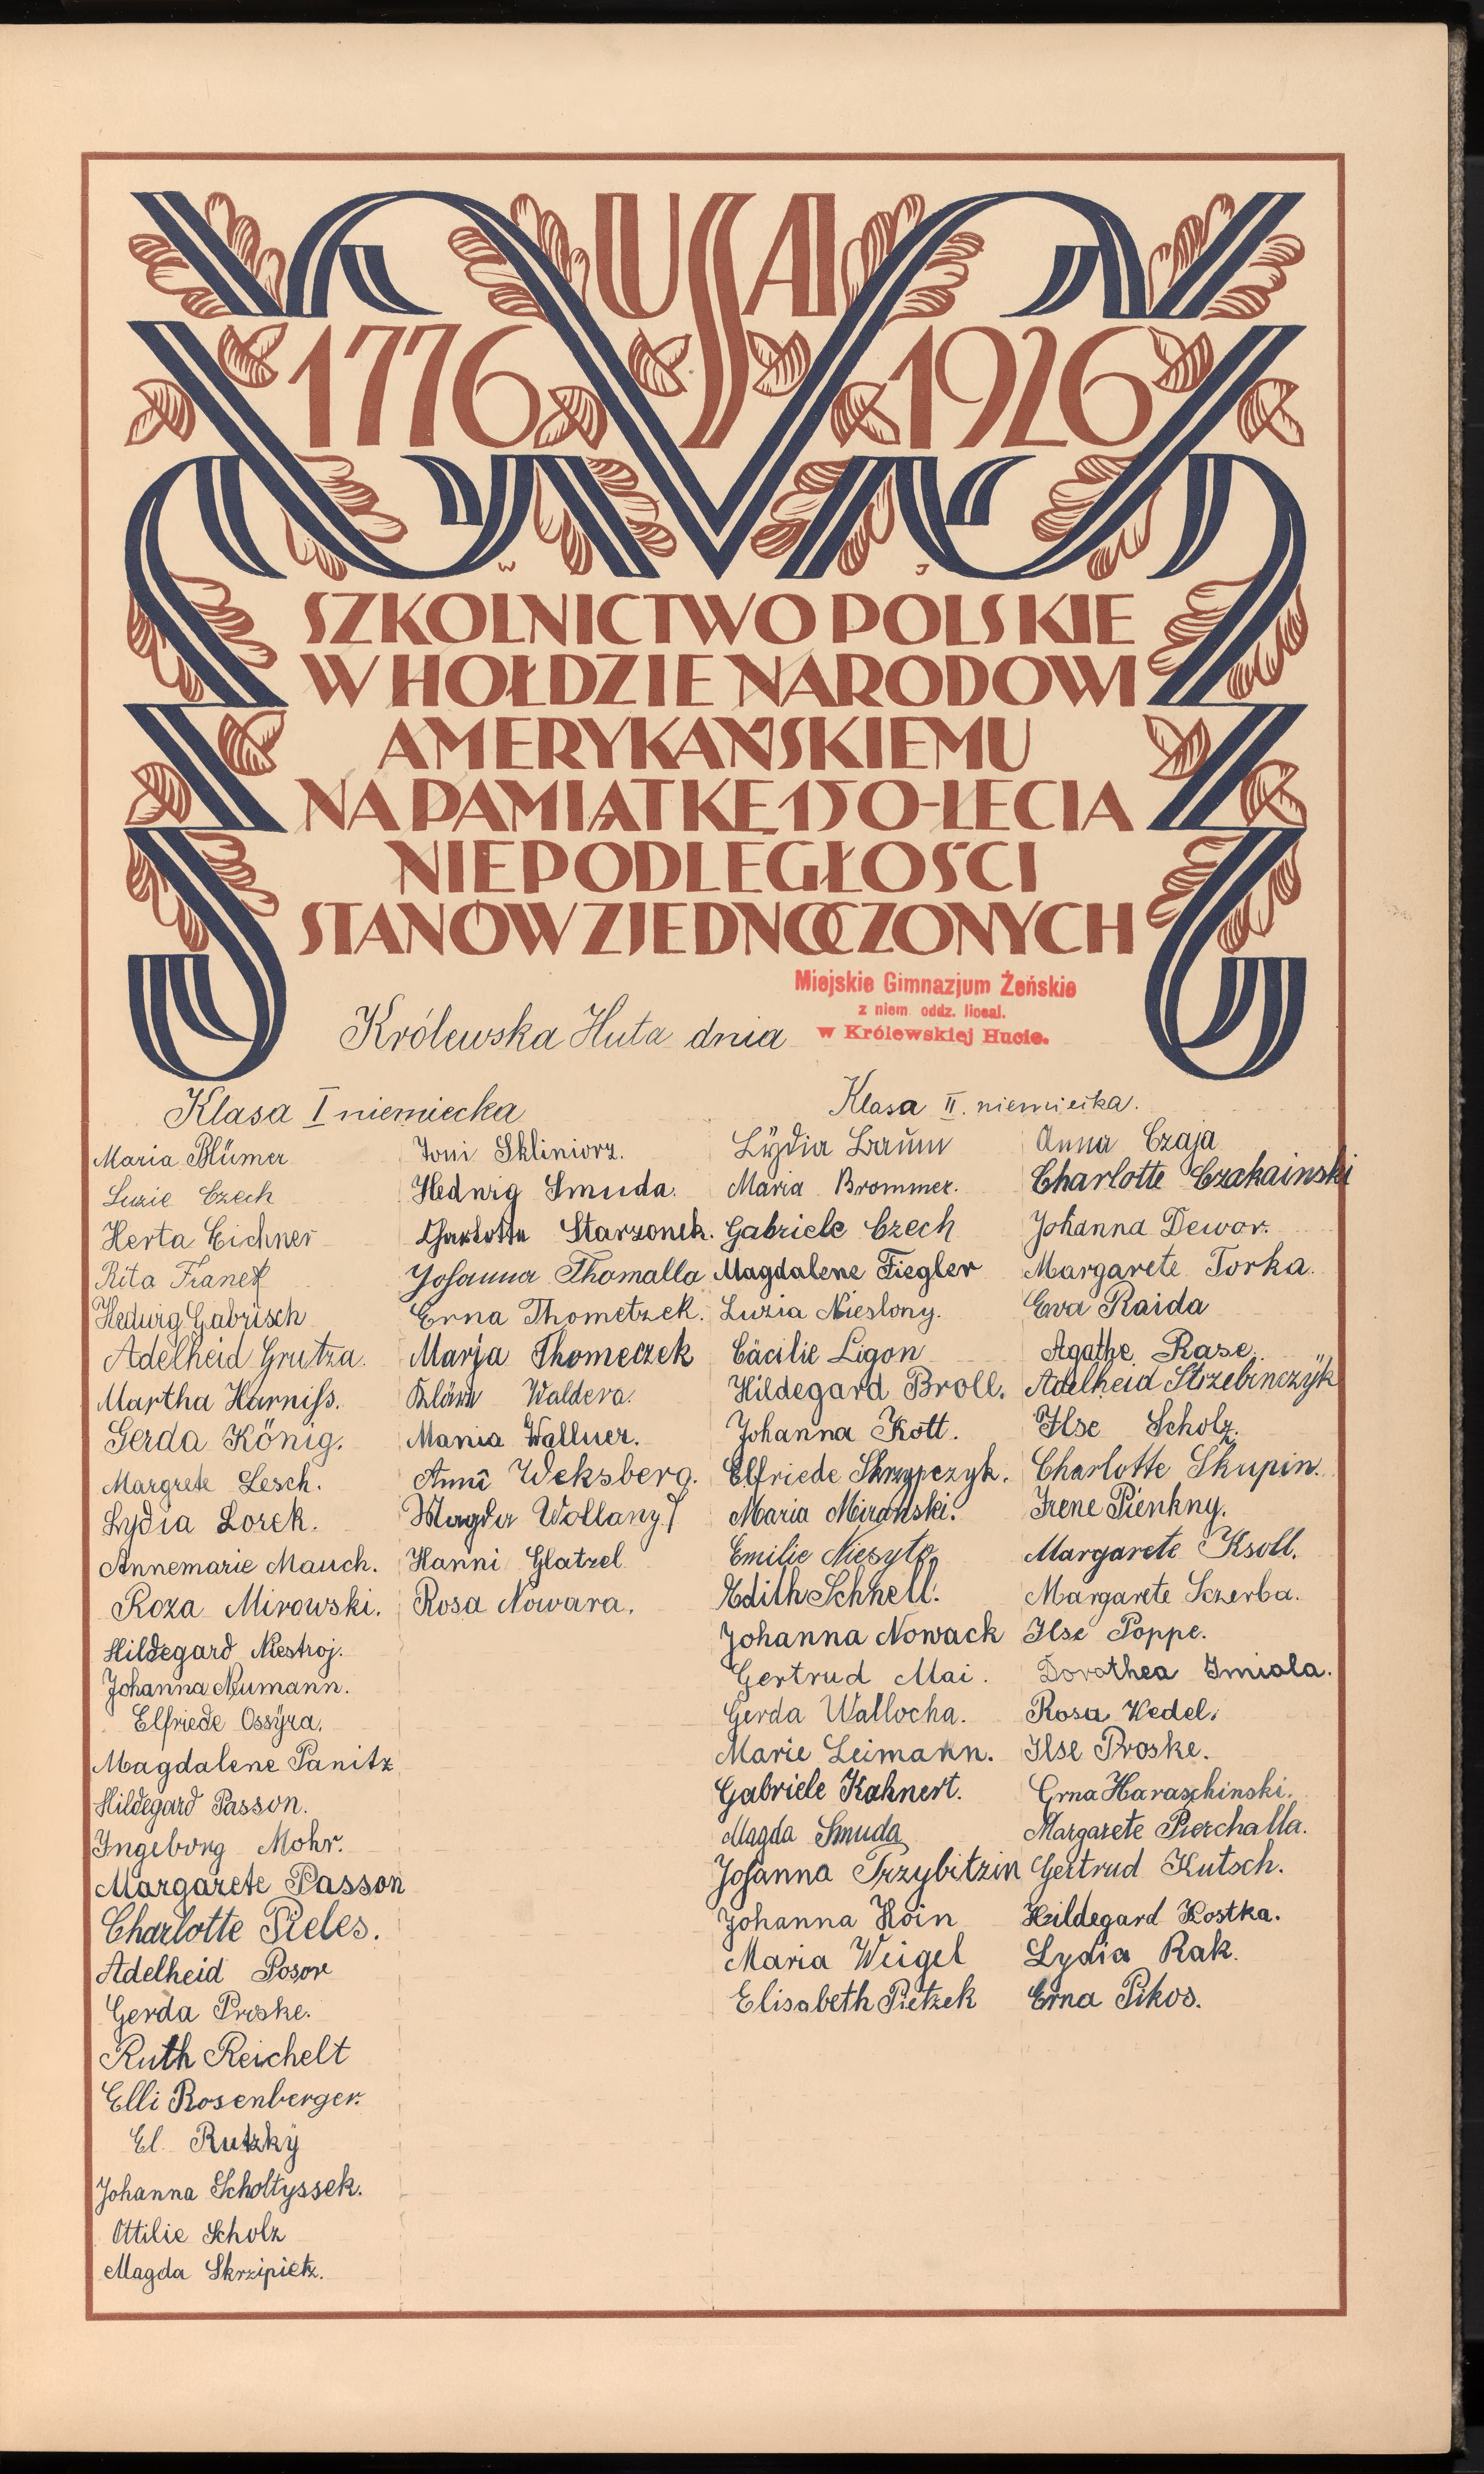 USA
1776 1926
W J
SZKOLNICTWO POLSKIE
W HOŁDZIE NARODOWI
AMERYKAŃSKIEMU
NA PAMIĄTKĘ 150-LECIA
NIEPODLEGŁOŚCI
STANÓW ZJEDNOCZONYCH
Miejskie Gimnazjum Żeńskie
z niem. oddz. liceal.
w Królewskiej Hucie.
Królewska Huta dnia
Klasa I niemiecka
Maria Blümer
Luzie Czech
Herta Eichner
Rita Franek
Hedwig Gabrisch
Adelheid Grutza.
Martha Harniss.
Gerda König.
Margrete Lesch.
Lydia Lorek.
Annemarie Mauch.
Roza Mirowski.
Hildegard Niestroj.
Johanna Neumann.
Elfriede Ossÿra.
Magdalene Panitz
Hildegard Passon.
Ingeborg Mohr.
Margarete Passon
Charlotte Pieles.
Adelheid Posor
Gerda Proske.
Ruth Reichelt
Elli Rosenberger.
El. Rutzkÿ
Johanna Scholtyssek.
Ottilie Scholz
Magda Skrzipietz.
Toni Skliniorz.
Hedwig Smuda.
Charlotte Starzonek.
Johanna Thomalla
Erna Thometzek.
Marja Thomeczek
Klära Waldera.
Mania Wallner.
Anni Weksberg.
Magda Wollany.
Hanni Glatzel
Rosa Nowara.
Klasa II. niemiecka.
Lÿdia Baum
Maria Brommer.
Gabriele Czech
Magdalene Fiegler
Luzia Nieslony.
Cäcilie Ligon
Hildegard Broll.
Johanna Kott.
Elfriede Skrzypczyk.
Maria Miranski.
Emilie Niesyto.
Edith Schnell.
Johanna Nowack
Gertrud Mai.
Gerda Wallocha.
Marie Leimann.
Gabriele Kahnert.
Magda Smuda
Johanna Trzybitzin
Johanna Hoin
Maria Weigel
Elisabeth Pietzek
Anna Czaja
Charlotte Czakainski
Johanna Dewor.
Margarete Torka.
Eva Raida
Agathe Rase.
Adelheid Strzebinczÿk
Ilse Scholz.
Charlotte Skupin.
Irene Pienkny.
Margarete Ksoll.
Margarete Sczerba.
Ilse Poppe.
Dorothea Imiola.
Rosa Wedel.
Ilse Proske.
Erna Haraschinski.
Margarete Pierchalla.
Gertrud Kutsch.
Hildegard Kostka.
Lydia Rak.
Erna Pikos.